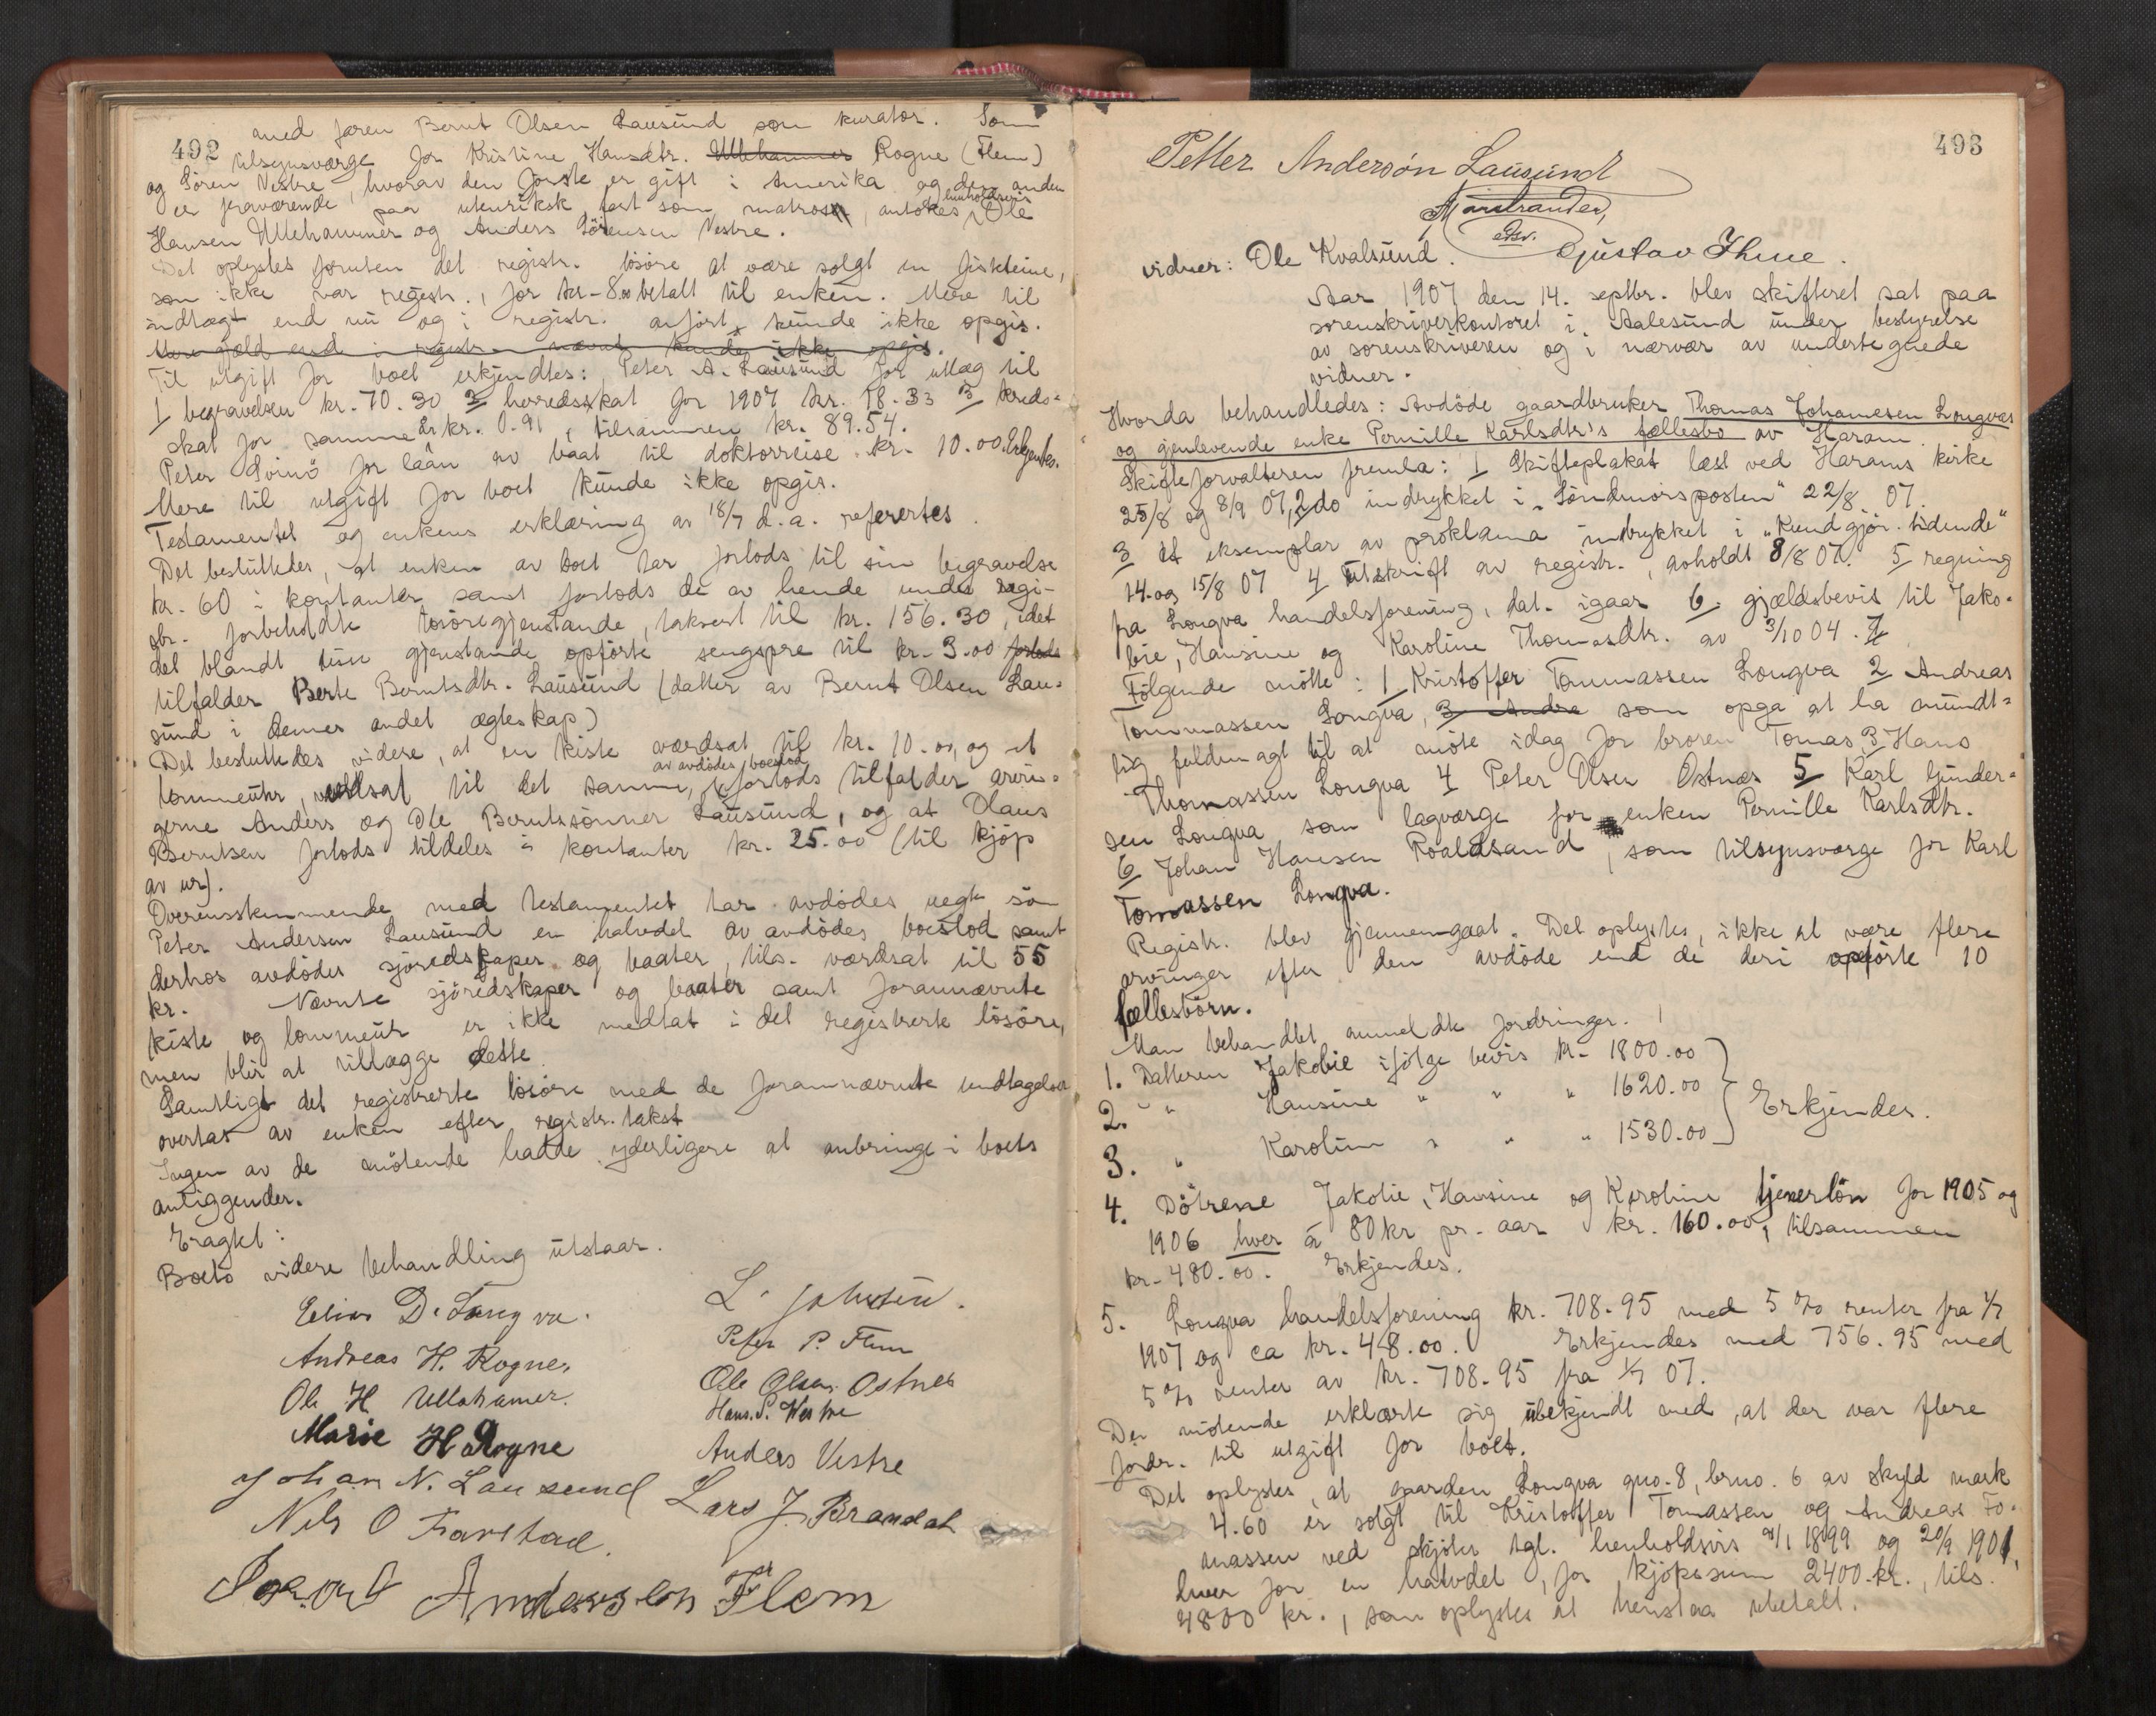 492
med faren Bernt Olsen Lausund som kurator. Som
tilsynsværge for Kristine Hansdtr. Ullehammer Rogne (Flem)
og Sören Vestre, hvorav den første er gift i Amerika og den anden
er fraværende paa utenriksk fart som matros, antokes henholdsvis Ole
Hansen Ullehammer og Anders Sörensen Vestre.
Det oplystes foruten det registr. lösöre at være solgt en fiskteine,
som ikke var registr., for kr. 8.00 betalt til enken. Mere til
indtægt end nu og i registr. anført kunde ikke opgis.
Mere gjæld end i registr. nævnt kunde ikke opgis.
Til utgift for boet erkjendtes: Peter A. Lausund for utlæg til
1 begravelsen kr. 70.30 2 herredsskat for 1907 kr. 18.33 3 kreds-
skat for samme år kr. 0.91, tilsammen kr. 89.54.
Peter Svinö for laan av baat til doktorreise kr. 10.00. Erkjendtes.
Mere til utgift for boet kunde ikke opgis.
Testamentet og enkens erklæring av 18/7 d.a. refertes.
Det besluttedes, at enken av boet har forlods til sin begravelse
kr. 60 i kontanter samt forlods de av hende under regi-
str. forbeholdte lösöregjenstande, taksert til kr. 156.30, idet
det blandt disse gjenstande opförte sengspre til kr. 3.00 forlods
tilfalder Berte Berntsdtr. Lausund (datter av Bernt Olsen Lau-
sund i dennes andet ægteskap)
Det besluttedes videre, at en kiste værdsat til kr. 10.00, og et
lommeuhr, værdsat til det samme, av avdödes boeslod forlods tilfalder arvin-
gerne Anders og Ole Berntssönner Lausund, og at Olaus
Berntsen forlods tildeles i kontanter kr. 25.00 (til kjöp
av ur).
Overensstemmende med testamentet har avdödes uegte sön
Peter Andersen Lausund en halvdel av avdödes boeslod samt
derhos avdödes sjöredskaper og baater, tils. værdsat til 55
kr. Nævnte sjöredskaper og baater samt forannævnte
kiste og lommeur er ikke medtat i det registrerte lösöre,
men blir at tillægge dette.
Samtligt det registrerte lösöre med de forannævnte undtagelser
overtas av enken efter registr. takst
Ingen av de mötende hadde yderligere at anbringe i boets
anliggender.
Eragtet:
Boets videre behandling utstaar.
Elias D. Longva.
L. Johnsen.
Andreas H. Rogne.
Peter P. Flem
Ole H. Ullehamer.
Ole Olsen Ostnes
Marie H Rogne
Hans. S. Vestre
Anders Vestre
Johan N. Lausund
Lars J. Brandal
Nils O
Anderson Flem
493
Petter Andersön Lausund
vidner: Ole Kvalsund. Gustav Thue.
Aar 1907 den 14. septbr. blev skifteret sat paa
sorenskriverkontoret i Aalesund under bestyrelse
av sorenskriveren og i nærvær av undertegnede
vidner.
Hvorda behandledes: Avdöde gaardbruker Thomas Johannesen Longvas
og gjenlevende enke Pernille Karlsdtr's fællesbo av Haram.
Skifteforvalteren fremla: 1 Skifteplakat læst ved Harams kirke
25/8 og 8/9 07, 2 do indrykket i „Söndmörsposten" 22/8 07.
3 et eksemplar av proklama indrykket i „Kundgjör. tidende"
14. og 15/8 07 4 Utskrift av registr., avholdt 8/8 07. 5 regning
fra Longva handelsforening, dat. igaar 6. gjældsbevis til Jako-
bie, Hansine og Karoline Thomasdtr. av 3/10 04. 7
Følgende mötte: 1 Kristoffer Tommassen Longva 2 Andreas
Tommassen Longva, 3 Andre som opga at ha mundt-
lig fuldmagt til at möte idag for broren Tomas 3 Hans
Thomassen Longva 4 Peter Olsen Ostnes 5 Karl Gunder-
sen Longva som lagværge for enken Pernille Karlsdtr.
6 Johan Hansen Roaldsand, som tilsynsværge for Karl
Tomassen Longva.
Registr. blev gjennemgaat. Det oplystes, ikke at være flere
arvinger efter den avdöde end de deri opførte 10
fællesbörn.
Man behandlet anmeldte fordringer.
1. Datteren Jakobie ifölge bevis kr. 1800.00
2. " Hansine " " " 1620.00 Erkjendes.
3. " Karoline " " " 1530.00
4. Dötrene Jakobie, Hansine og Karoline tjenerlön for 1905 og
1906 hver á 80 kr pr. aar kr. 160.00, tilsammen
kr. 480.00. Erkjendes.
5. Longva handelsforening kr. 708.95 med 5 % renter fra 1/7
1907 og ca kr. 48.00. Erkjendes med 756.95 med
5 % renter av kr. 708.95 fra 1/7 07.
De mötende erklærte sig ubekjendt med, at der var flere
fordr. til utgift for boet.
Det oplystes, at gaarden Longva gno. 8, brno. 6 av skyld mark
4.60 er solgt til Kristoffer Tomassen og Andreas To-
massen ved skjöter tgl. henholdsvis 1899 og 20/9 1901,
hver for en halvdel, for kjøpesum 2400 kr., tils.
4800 kr., som oplystes at henstaa ubetalt.